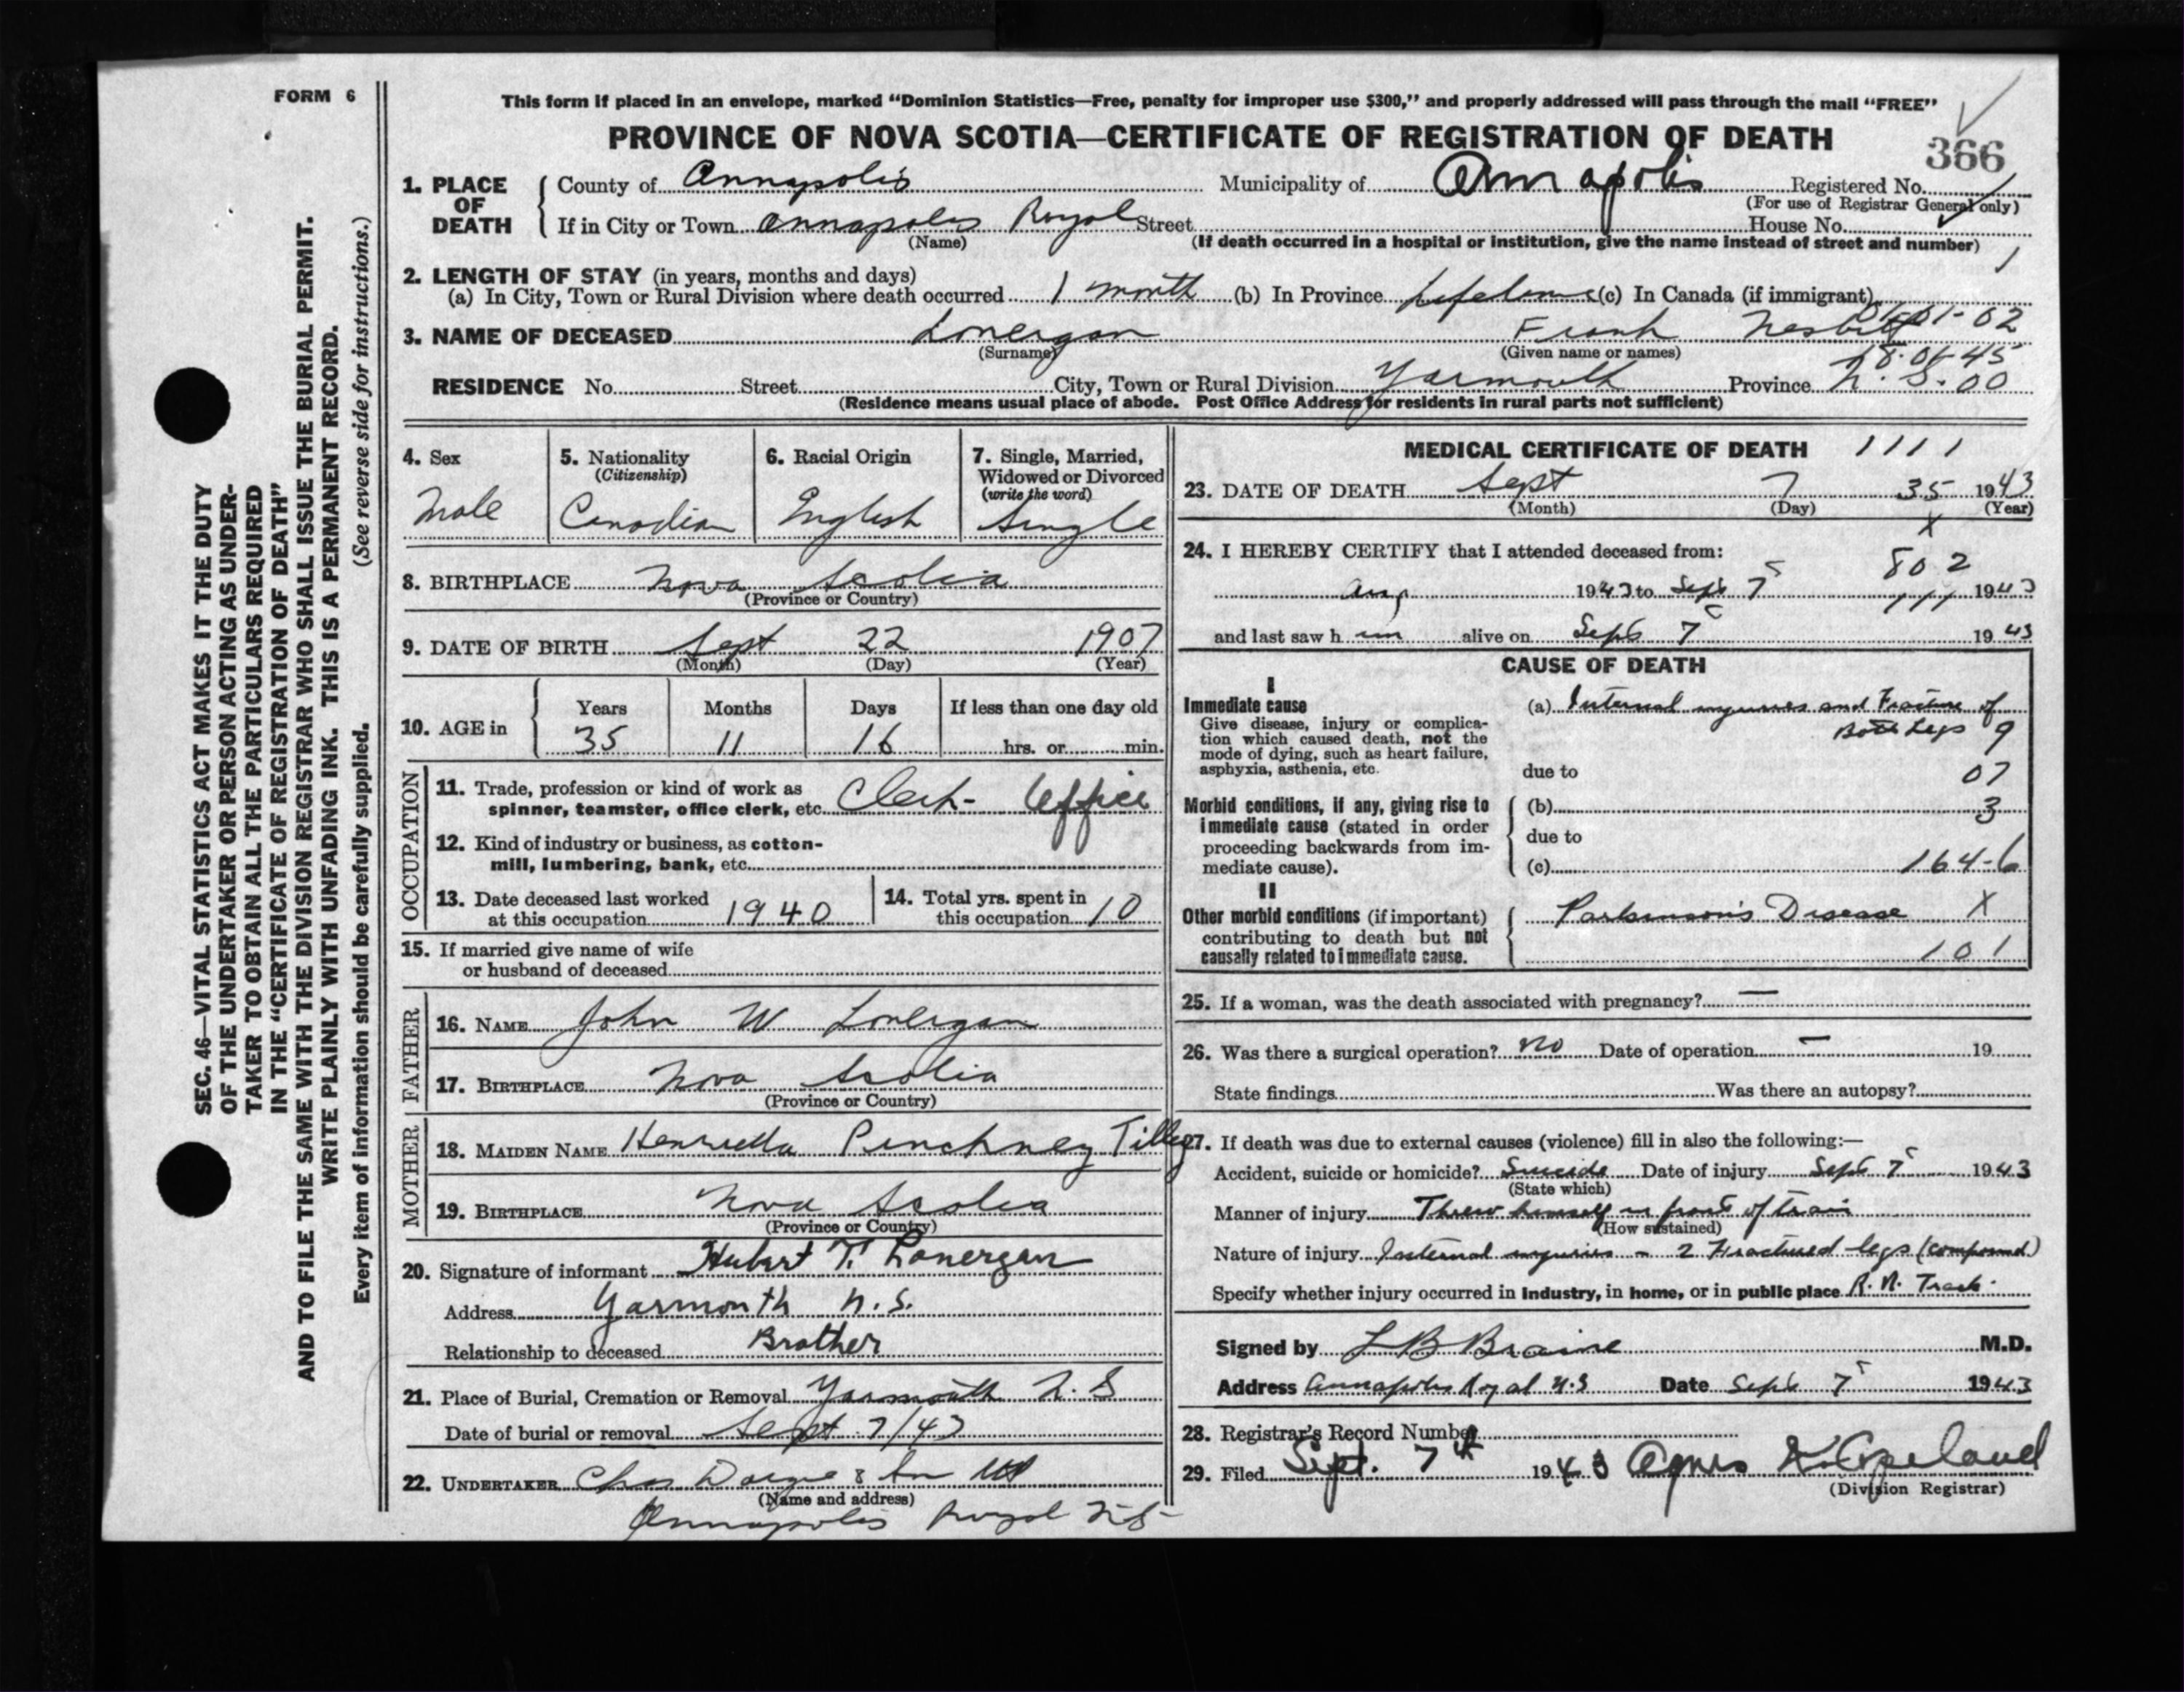 FORM 6
This form if placed in an envelope, marked "Dominion Statistics—Free, penalty for improper use $300," and properly addressed will pass through the mail "FREE"
PROVINCE OF NOVA SCOTIA—CERTIFICATE OF REGISTRATION OF DEATH
366
1. PLACE OF DEATH
County of Annapolis Municipality of Annapolis Registered No.
(For use of Registrar General only)
If in City or Town Annapolis Royal Street House No.
(Name) (If death occurred in a hospital or institution, give the name instead of street and number)
2. LENGTH OF STAY (in years, months and days)
(a) In City, Town or Rural Division where death occurred 1 month (b) In Province Lifetime (c) In Canada (if immigrant)
3. NAME OF DECEASED Lonergan Frank Nesbitt
(Surname) (Given name or names)
RESIDENCE No. Street City, Town or Rural Division Yarmouth Province N.S.
(Residence means usual place of abode. Post Office Address for residents in rural parts not sufficient)
4. Sex
Male
5. Nationality
(Citizenship)
Canadian
6. Racial Origin
English
7. Single, Married,
Widowed or Divorced
(write the word)
Single
8. BIRTHPLACE Nova Scotia
(Province or Country)
9. DATE OF BIRTH Sept 22 1907
(Month) (Day) (Year)
10. AGE in
Years Months Days If less than one day old
35 11 16 hrs. or min.
OCCUPATION
11. Trade, profession or kind of work as
spinner, teamster, office clerk, etc. Clerk - Office
12. Kind of industry or business, as cotton-
mill, lumbering, bank, etc.
13. Date deceased last worked
at this occupation 1940
14. Total yrs. spent in
this occupation 10
15. If married give name of wife
or husband of deceased
FATHER
16. NAME John W Lonergan
17. BIRTHPLACE Nova Scotia
(Province or Country)
MOTHER
18. MAIDEN NAME Henrietta Pinchney Tilley
19. BIRTHPLACE Nova Scotia
(Province or Country)
20. Signature of informant Hubert T. Lonergan
Address Yarmouth N.S.
Relationship to deceased Brother
21. Place of Burial, Cremation or Removal Yarmouth N.S
Date of burial or removal Sept 7/43
22. UNDERTAKER Chas & Son
(Name and address)
Annapolis Royal N.S
MEDICAL CERTIFICATE OF DEATH 1111
23. DATE OF DEATH Sept 7 35 1943
(Month) (Day) (Year)
X
24. I HEREBY CERTIFY that I attended deceased from:
802
Aug 1943 to Sept 7 1943
111
and last saw h im alive on Sept 7 1943
CAUSE OF DEATH
I
Immediate cause
Give disease, injury or complica-
tion which caused death, not the
mode of dying, such as heart failure,
asphyxia, asthenia, etc.
(a) Internal injuries and Fracture of
Both Legs 9
due to 07
Morbid conditions, if any, giving rise to
immediate cause (stated in order
proceeding backwards from im-
mediate cause).
(b) 3
due to
(c) 164-6
II
Other morbid conditions (if important)
contributing to death but not
causally related to immediate cause.
Parkinson's Disease X
101
25. If a woman, was the death associated with pregnancy? —
26. Was there a surgical operation? No Date of operation — 19
State findings Was there an autopsy?
27. If death was due to external causes (violence) fill in also the following:—
Accident, suicide or homicide? Suicide Date of injury Sept 7 1943
(State which)
Manner of injury Threw himself in front of train
(How sustained)
Nature of injury Internal injuries - 2 Fractured legs (compound)
Specify whether injury occurred in industry, in home, or in public place R.R. Track.
Signed by L B Braine M.D.
Address Annapolis Royal N.S Date Sept 7 1943
28. Registrar's Record Number
29. Filed Sept. 7th 1943 Agnes K. Copeland
(Division Registrar)
SEC. 46—VITAL STATISTICS ACT MAKES IT THE DUTY
OF THE UNDERTAKER OR PERSON ACTING AS UNDER-
TAKER TO OBTAIN ALL THE PARTICULARS REQUIRED
IN THE "CERTIFICATE OF REGISTRATION OF DEATH"
AND TO FILE THE SAME WITH THE DIVISION REGISTRAR WHO SHALL ISSUE THE BURIAL PERMIT.
WRITE PLAINLY WITH UNFADING INK. THIS IS A PERMANENT RECORD.
Every item of information should be carefully supplied. (See reverse side for instructions.)